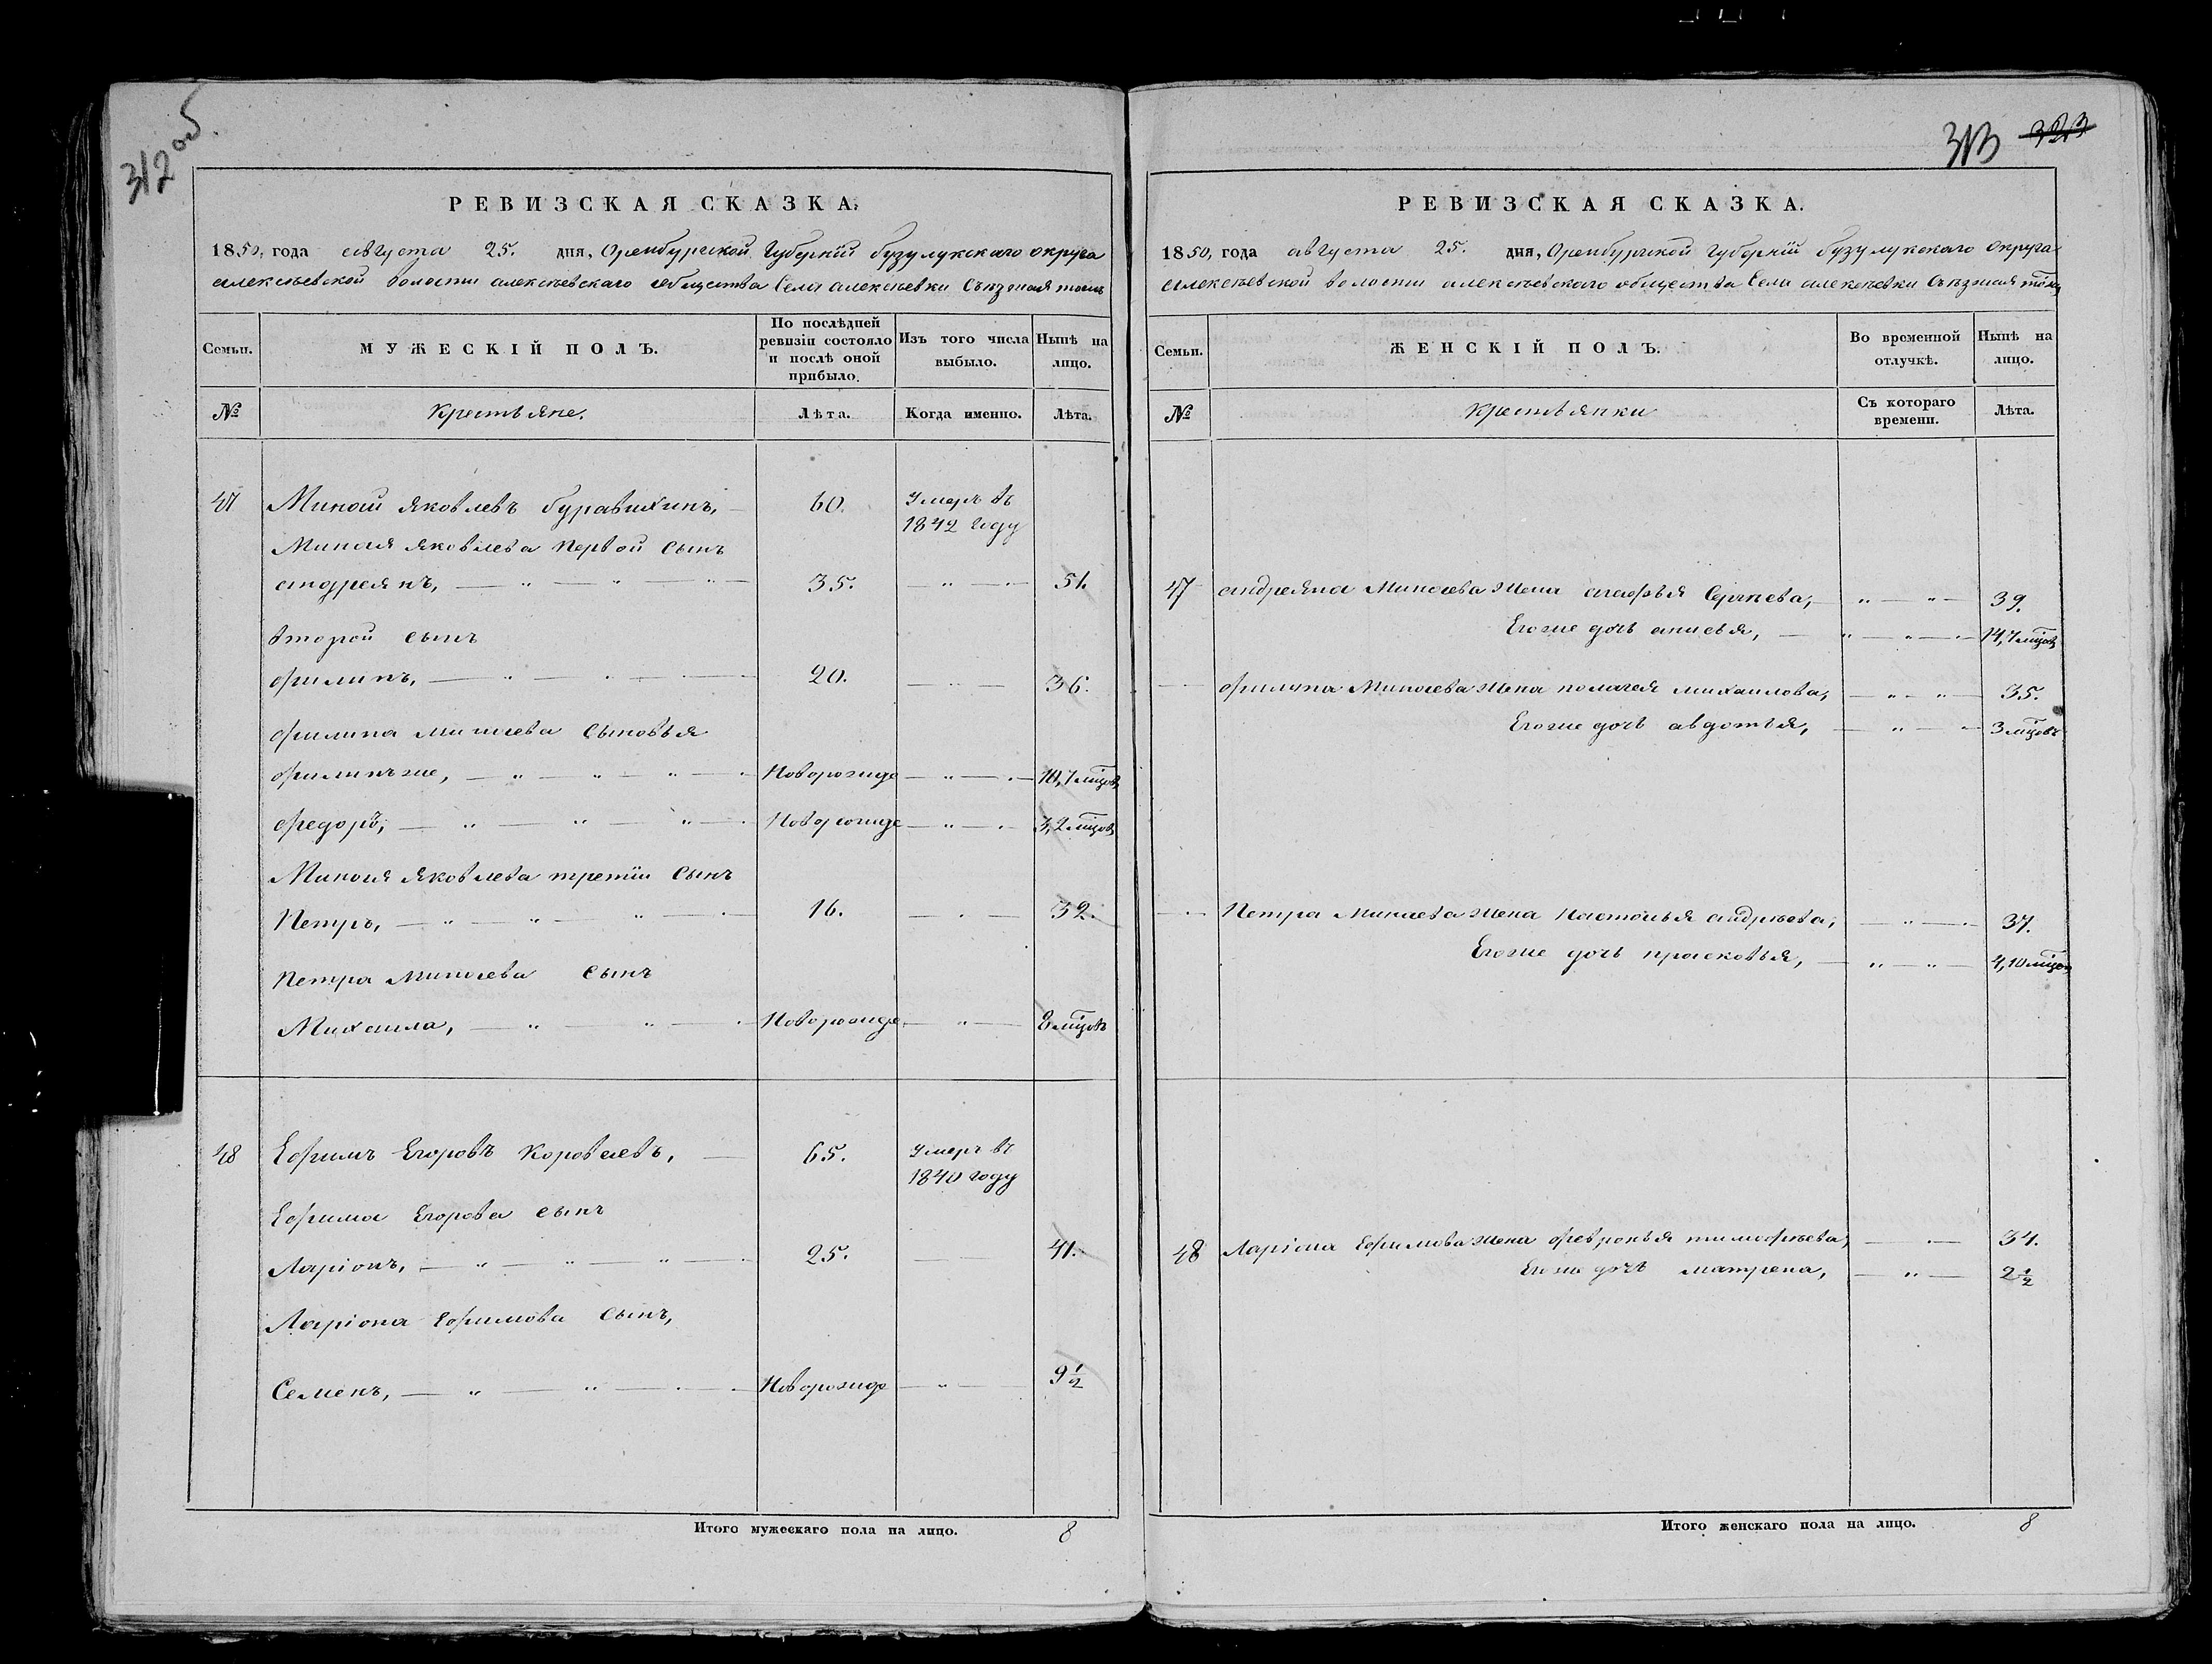 312 об.
РЕВИЗСКАЯ СКАЗКА.
1850, года августа 25. дня, Оренбургской Губерніи бузулукскаго округа
алексѣевской волости алексѣевскаго общества Села алексѣевки Съѣзжая тожъ
Семьи.
МУЖЕСКІЙ ПОЛЪ.
По послѣдней ревизіи состояло и послѣ оной прибыло.
Изъ того числа выбыло.
Нынѣ на лицо.
№
Крестьяне.
Лѣта.
Когда именно.
Лѣта.
47 Миной Яковлевъ буравихинъ, 60. Умеръ въ
1842 Году
Миная Яковлева Первой Сынъ
андреянъ, — " — " — " — 35. — " — 51.
второй сынъ
филипъ, — " — 20. — 36.
филипа минаева Сыновья
филипъ же, — " — " — " — Новорожде — " — 10, 7 мцовъ
федоръ, — " — " — " — Новорожде — " — 3, 2 мцовъ
Миная Яковлева третій Сынъ
Петръ, — " — " — " — 16. — 32.
Петра Минаева Сынъ
Михаила, — " — " — Новорожде — " — 8 мцовъ
48 Ефимъ Егоровъ Коровлевъ, — 65. Умеръ въ
1840 году
Ефима Егорова сынъ
Ларіонъ, — " — " — " — 25. — 41.
Ларіона Ефимова Сынъ,
Семенъ, — " — " — Новорожде — " — 9 1/2
Итого мужескаго пола на лицо. 8
313 323
РЕВИЗСКАЯ СКАЗКА.
1850, года августа 25. дня, Оренбургской Губерніи бузулукскаго округа
алексѣевской волости алексѣевскаго общества Села алексѣевки Съѣзжая тожъ
Семьи.
ЖЕНСКІЙ ПОЛЪ.
Во временной отлучкѣ.
Нынѣ на лицо.
№
Крестьянки
Съ котораго времени.
Лѣта.
47 андреяна Минаева жена агафья Сергеева, " — " — 39.
Егоже дочь анисья, — " — " — 14, 7 мцовъ
филипа Минаева жена полагея михаилова, — " — " — 35.
Егоже дочь авдотья, — " — 3 мцовъ
Петра Минаева жена Настасья андрѣева, — " — 37.
Егоже дочь прасковья, — " — " — 4, 10 мцовъ
48 Ларіона Ефимова жена февронья тимофѣева, — 34.
Егоже дочь матрена, — " — 2 1/2
Итого женскаго пола на лицо. 8